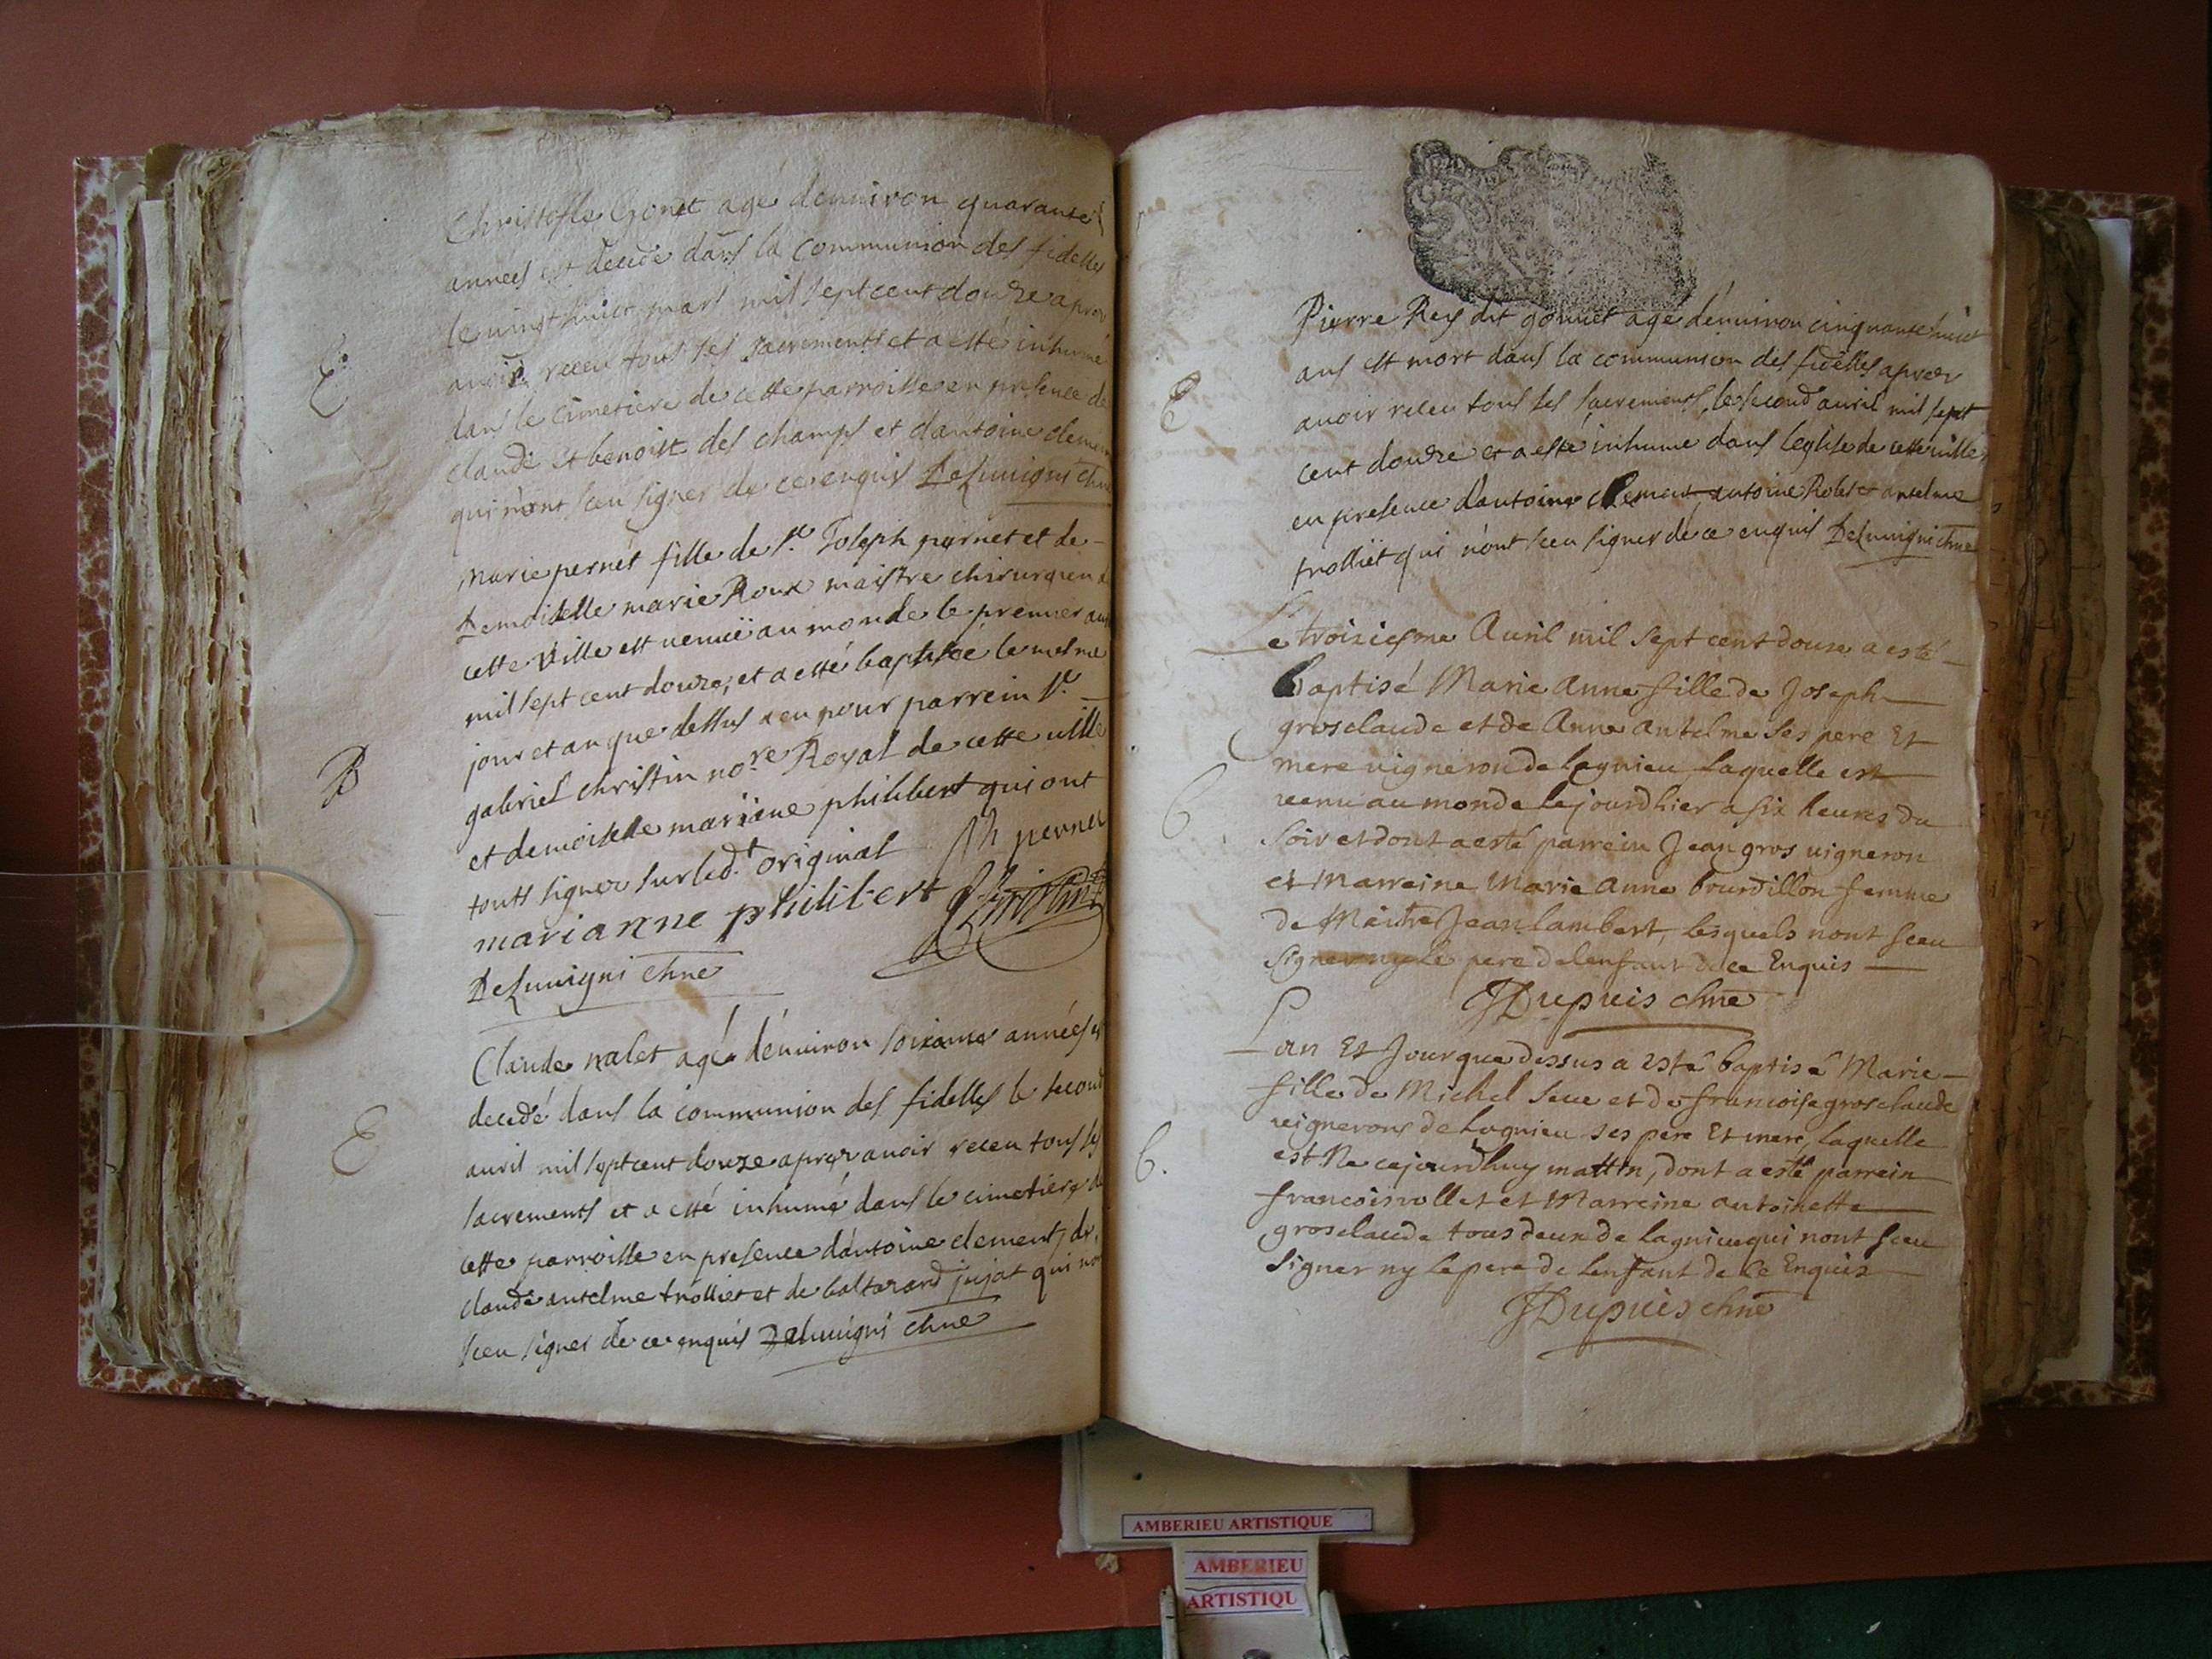 Christofle Gonet agé denuiron quarante
années est decedé dans la communion des fidelles
le uingt huict mars mil sept cent douze apres
auoir receu tous ses sacrements et a esté inhumé
E.
dans le cimetiere de cette parroisse en presence de
claude et benoist des champs et dantoine clement
qui n'ont sceu signer de ce enquis Deluuigni chne
Marie pernet fille de sr. Joseph pernet et de
Demoiselle marie Roux maistre chirurgien de
cette Ville est venuë au monde le premier auril
mil sept cent douze, et a esté baptisée le mesme
jour et an que dessus a eu pour parrein sr.
B
gabriel christin nore. Royal de cette uille
et demoiselle mariane philibert qui ont
touts signer sur led.t original
pernet
marianne philibert Christin
Deluuigni chne
Claude nalet agé denuiron soixante années est
decedé dans la communion des fidelles le second
E
auril mil sept cent douze apres auoir receu tous ses
sacrements et a esté inhumé dans le cimetiere de
cette parroisse en presence dantoine clement, de
claude antelme trolliet et de baltazard jujat qui nont
sceu signer de ce enquis Deluuigni chne
Pierre Rey dit gonnet agé denuiron cinquante huit
ans est mort dans la communion des fidelles apres
E
auoir receu tous ses sacrements, le second auril mil sept
cent douze et a esté inhume dans leglise de cette uille
en presence dantoine clement, antoine Robet et antelme
trolliet qui n'ont sceu signer de ce enquis Deluuigni chne
Le troisiesme Auril mil sept cent douze a esté
baptisé Marie Anne fille de Joseph
grosclaude et de Anne Antelme ses pere Et
mere uigneron de lagnieu, laquelle est
6
venu au monde le jourdhier a six heures du
soir et dont a esté parrein Jean gros uigneron
et Marreine Marie Anne bourdillon femme
de Maitre Jean lambert, lesquels nont sceu
signer ny le pere de lenfant de ce Enquis
JDupuis chne
Lan Et Jour que dessus a esté baptisé Marie
fille de Michel seue et de francoise grosclaude
uignerons de Lagnieu ses pere Et mere, laquelle
6.
est Ne cejourdhuy mattin, dont a esté parrein
francois vollet et Marreine antoinette
grosclaude tous deux de lagnieu qui nont sceu
signer ny le pere de lenfant de ce Enquis
JDupuis chne
AMBERIEU ARTISTIQUE
AMBERIEU
ARTISTIQU